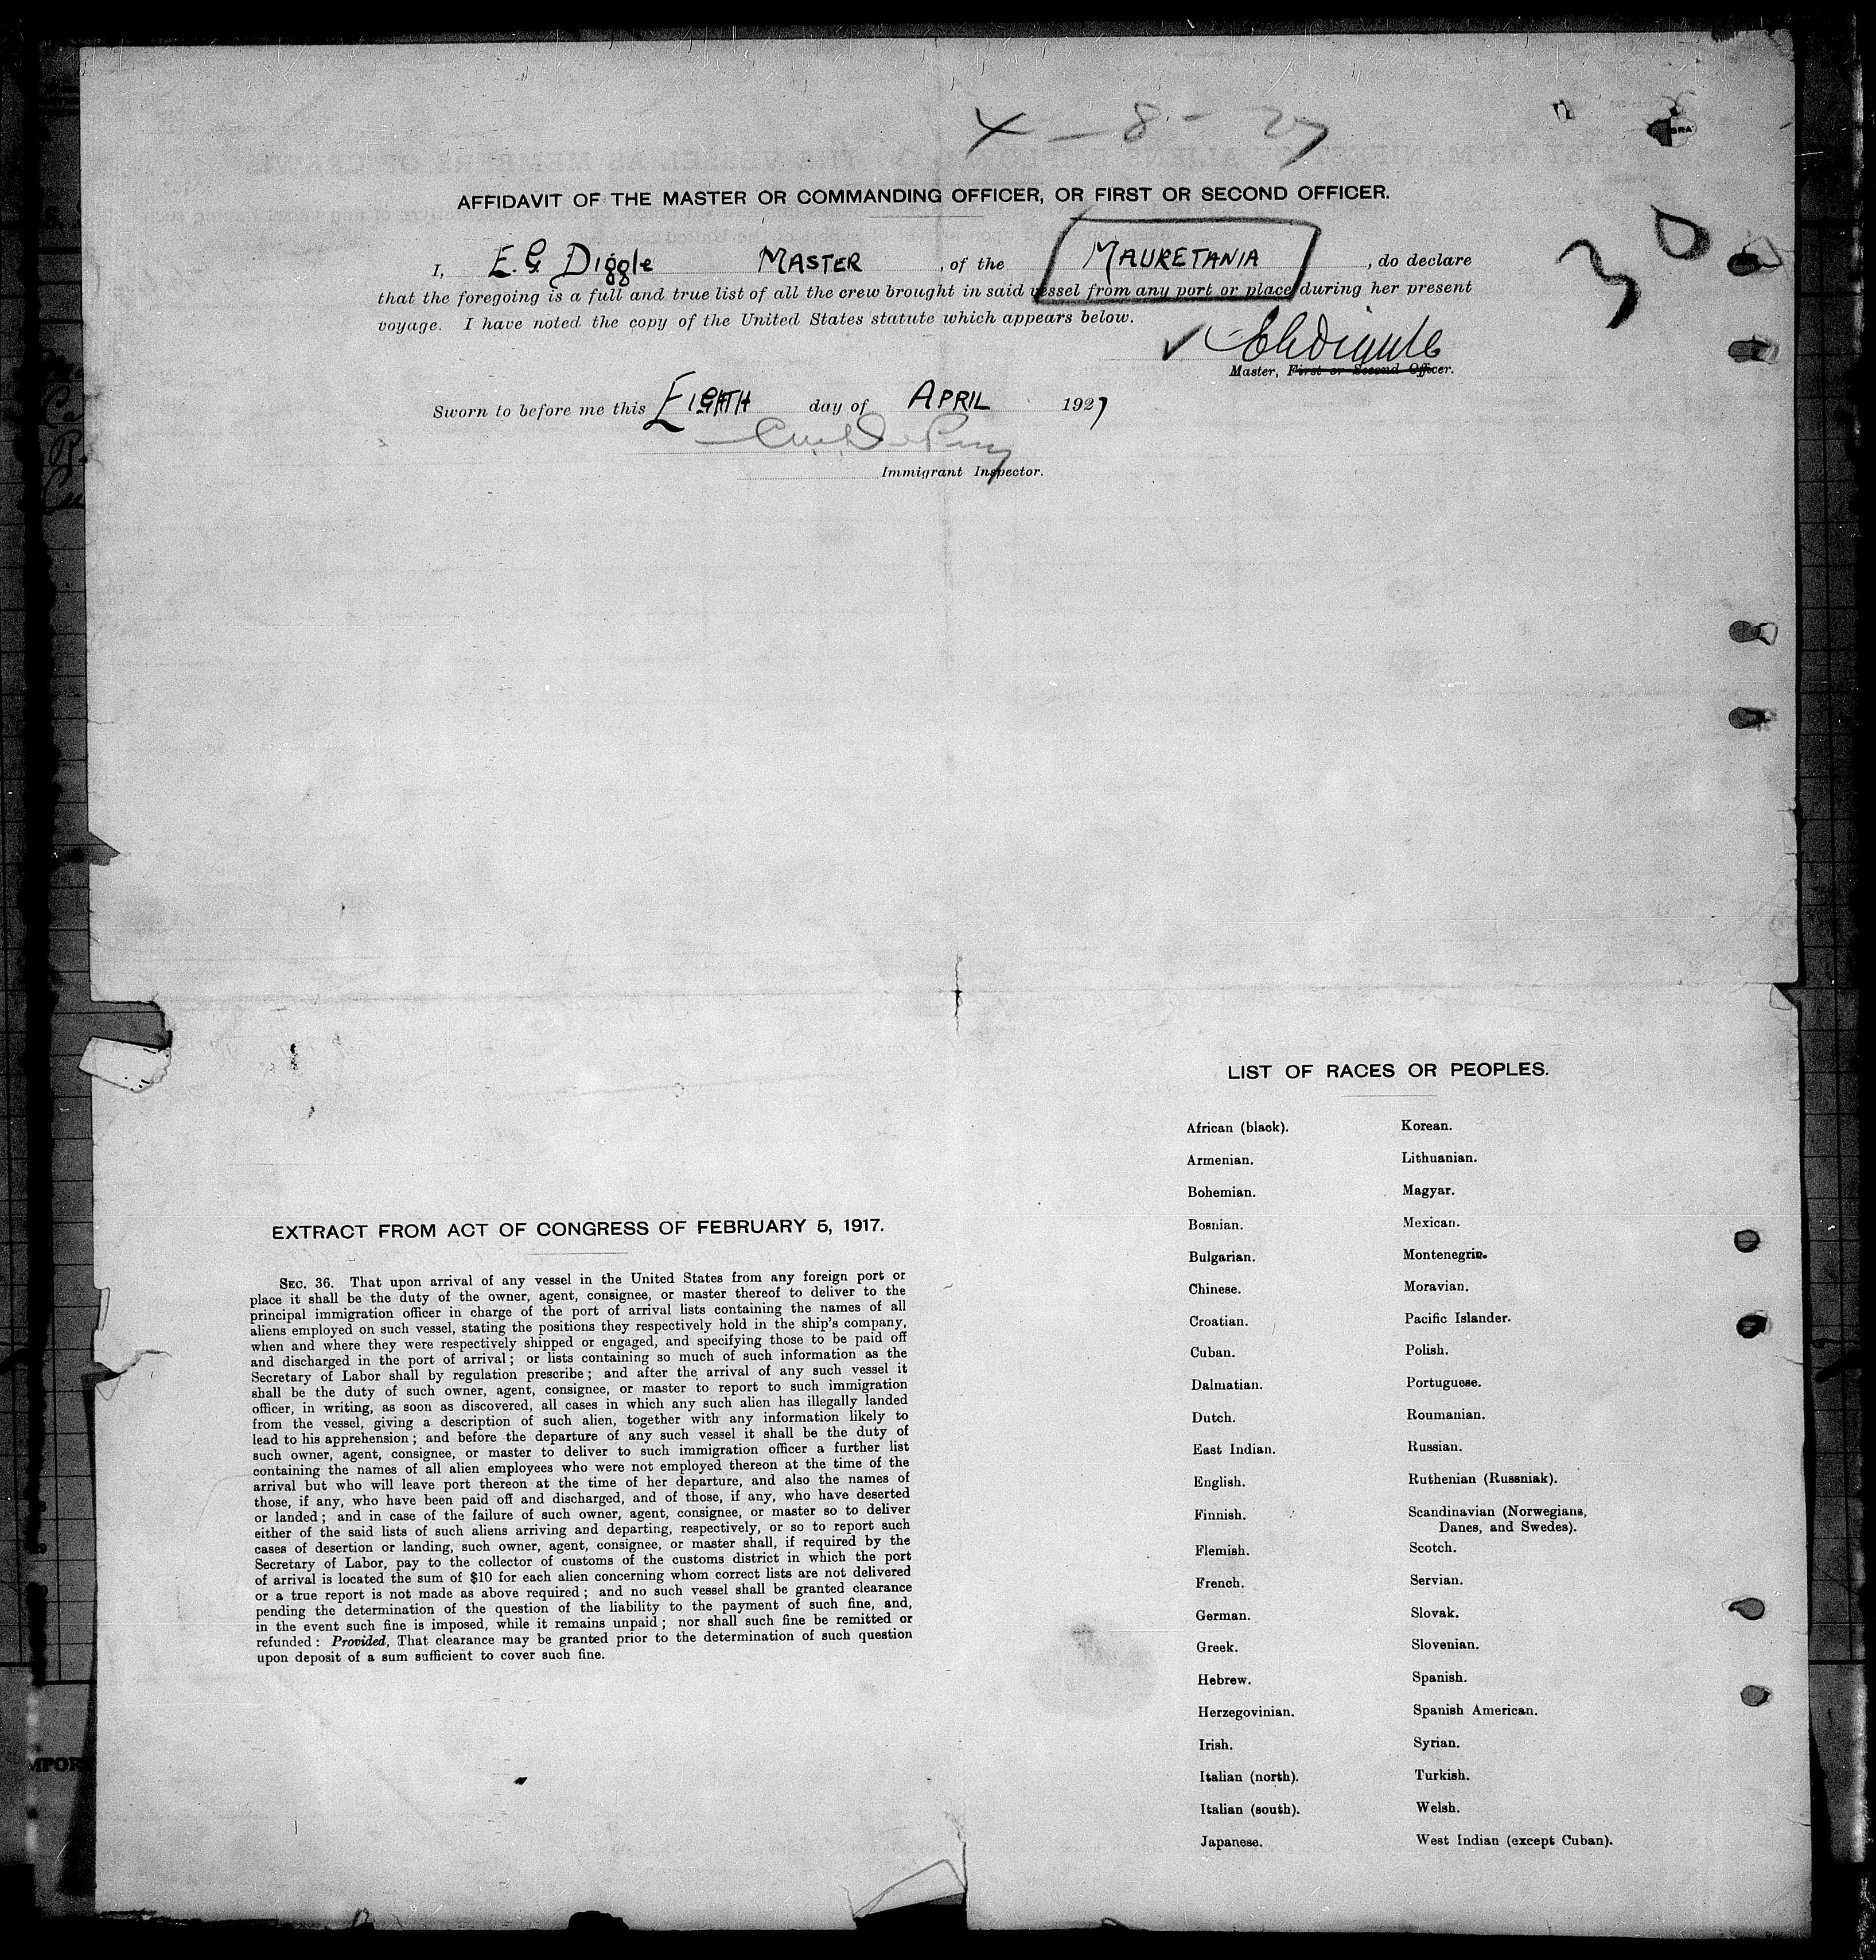 4 - 8 - 27
AFFIDAVIT OF THE MASTER OR COMMANDING OFFICER, OR FIRST OR SECOND OFFICER.
30
I, E. G. Diggle MASTER , of the MAURETANIA , do declare
that the foregoing is a full and true list of all the crew brought in said vessel from any port or place during her present
voyage. I have noted the copy of the United States statute which appears below.
Master, First or Second Officer.
Sworn to before me this EIGHTH day of APRIL 1927
Immigrant Inspector.
EXTRACT FROM ACT OF CONGRESS OF FEBRUARY 5, 1917.
SEC. 36. That upon arrival of any vessel in the United States from any foreign port or
place it shall be the duty of the owner, agent, consignee, or master thereof to deliver to the
principal immigration officer in charge of the port of arrival lists containing the names of all
aliens employed on such vessel, stating the positions they respectively hold in the ship's company,
when and where they were respectively shipped or engaged, and specifying those to be paid off
and discharged in the port of arrival; or lists containing so much of such information as the
Secretary of Labor shall by regulation prescribe; and after the arrival of any such vessel it
shall be the duty of such owner, agent, consignee, or master to report to such immigration
officer, in writing, as soon as discovered, all cases in which any such alien has illegally landed
from the vessel, giving a description of such alien, together with any information likely to
lead to his apprehension; and before the departure of any such vessel it shall be the duty of
such owner, agent, consignee, or master to deliver to such immigration officer a further list
containing the names of all alien employees who were not employed thereon at the time of the
arrival but who will leave port thereon at the time of her departure, and also the names of
those, if any, who have been paid off and discharged, and of those, if any, who have deserted
or landed; and in case of the failure of such owner, agent, consignee, or master so to deliver
either of the said lists of such aliens arriving and departing, respectively, or so to report such
cases of desertion or landing, such owner, agent, consignee, or master shall, if required by the
Secretary of Labor, pay to the collector of customs of the customs district in which the port
of arrival is located the sum of $10 for each alien concerning whom correct lists are not delivered
or a true report is not made as above required; and no such vessel shall be granted clearance
pending the determination of the question of the liability to the payment of such fine, and,
in the event such fine is imposed, while it remains unpaid; nor shall such fine be remitted or
refunded: Provided, That clearance may be granted prior to the determination of such question
upon deposit of a sum sufficient to cover such fine.
LIST OF RACES OR PEOPLES.
African (black). Korean.
Armenian. Lithuanian.
Bohemian. Magyar.
Bosnian. Mexican.
Bulgarian. Montenegrin.
Chinese. Moravian.
Croatian. Pacific Islander.
Cuban. Polish.
Dalmatian. Portuguese.
Dutch. Roumanian.
East Indian. Russian.
English. Ruthenian (Russniak).
Finnish. Scandinavian (Norwegians,
Danes, and Swedes).
Flemish. Scotch.
French. Servian.
German. Slovak.
Greek. Slovenian.
Hebrew. Spanish.
Herzegovinian. Spanish American.
Irish. Syrian.
Italian (north). Turkish.
Italian (south). Welsh.
Japanese. West Indian (except Cuban).